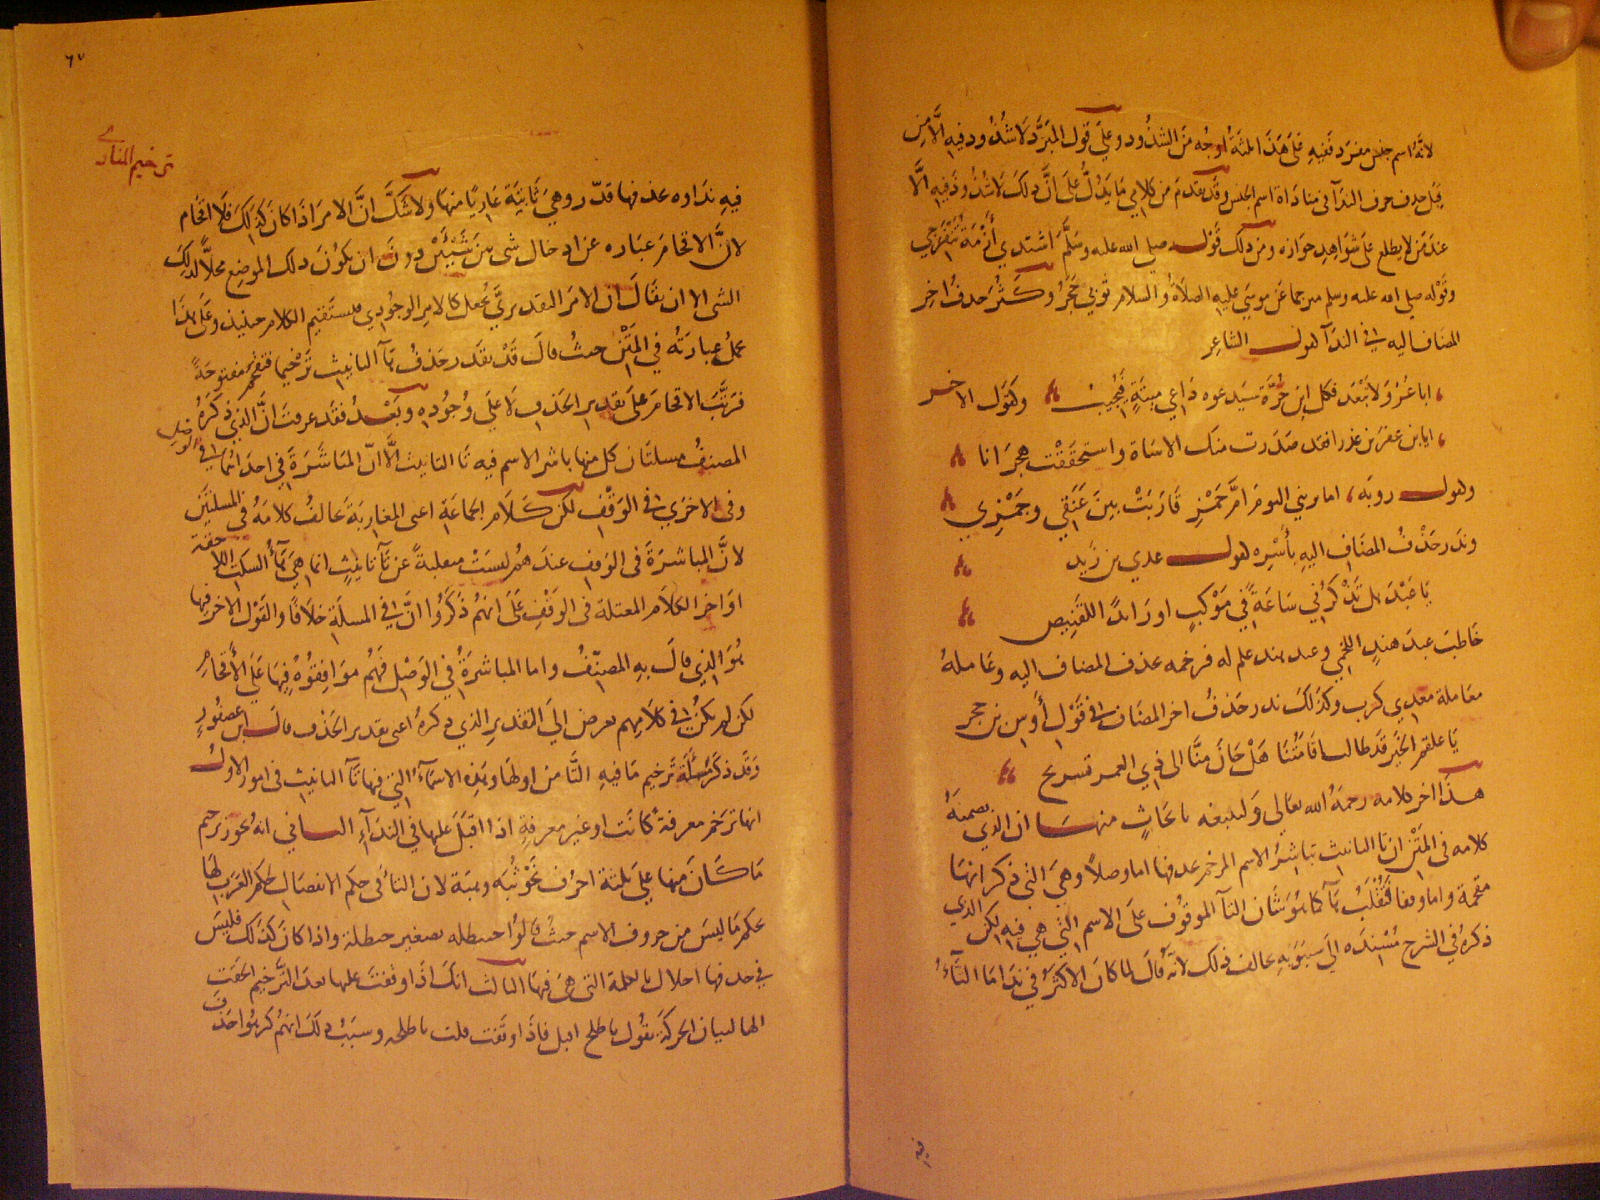 لانه اسم جنس مفرد ففيه على هذا ثلثة اوجه من الشذوذ وعلى قول المبرد لا شذوذ فيه الا من
قبل حذف حرف الندآ في مناداة اسم الجنس وقد تقدم من كلامي ما يدل على ان ذلك لا شذوذ فيه الا
عند من لا يطلع على شواهد جوازه ومن ذلك قوله صلى الله عليه وسلم اشتدي أزمة تنفرجي
وقوله صلى الله عليه وسلم مترجما عن موسى عليه الصلاة والسلام ثوبي حجر وكثر حذف اخر
المضاف اليه في الندآ كقول الشاعر
ابا عرو لا تبعد فكل ابن حرة سيدعوه داعي ميتة فيجيب وكقول الاخر
ايا بن عفر بن عذرا فقد صدرت منك الاساة واستحققت هجرانا
وكقول روبه اما تريني اليوم ام حمز قاربت بين عنقي وجمزي
وندر حذف المضاف اليه بأسره كقول عدي بن زيد
يا عبد هل تذكرني ساعة في موكب او رائدا للقنيص
خاطب عبد هند اللخمي وعبد هند علم له فرخمه بحذف المضاف اليه وعامله
معاملة معدي كرب وكذلك ندر حذف اخر المضاف في قول أوس بن حجر
يا علقم الخير قد طالت اقامتنا هل حان منا الى ذي الغمر تسريح
هذا اخر كلامه رحمه الله تعالى ولنتبعه بابحاث منها ان الذي تضمنه
كلامه في المتن ان تا التانيث تباشر الاسم المرخم بحذفها اما وصلا وهي التي ذكر انها
مقحمة واما وقفا فتقلب هآ كما هو شان التآ الموقوف على الاسم التي هي فيه لكن الذي
ذكره في الشرح مسنده الى سيبويه يخالف ذلك لانه قال لما كان الاكثر في ندا ما التآء
فيه
٦٧
ترخيم المنادى
فيه نداوه بحذفها قدر وهي ثابتة عاريا منها ولا شك ان الامر اذا كان كذلك فلا اقحام
لان الاقحام عباره عن ادخال شي بين شيئين دون ان يكون ذلك الموضع محلا لذلك
الشي الا ان يقال ان الامر التقديري يجعل كالامر الوجودي فيستقيم الكلام حينئذ وعلى هذا
تحمل عبارته في المتن حيث قال قد يقدر حذف هآ التانيث ترخيما فتقحم مفتوحة
فرتب الاقحام على تقدير الحذف لا على وجوده وبعد فقد عرفت ان الذي ذكره
المصنف مسلتان كل منها باشر الاسم فيه تا التانيث الا ان المباشرة في احداهما في الوصل
وفي الاخرى في الوقف لكن كلام الجماعة اعني المغاربة يخالف كلامه في المسلتين
لان المباشرة في الوقف عندهم ليست منقلبة عن تآ تانيث انما هي هآ السكت اللاحقة
اواخر الكلام المعتلة في الوقف على انهم ذكروا ان في المسلة خلافا والقول الاخر فيها
هو الذي قال به المصنف واما المباشرة في الوصل فهم موافقوه فيها على الاقحام
لكن لم يكن في كلامهم تعرض الى التقدير الذي ذكره اعني تقدير الحذف قال ابن عصفور
وقد ذكر مسئلة ترخيم ما فيه التا من اولها وهذه الاسمآء التي فيها تآ التانيث في امور الاول
انها ترخم معرفة كانت او غير معرفة اذا اقبل عليها في الندآء الثاني انه يجوز ترخيم
ما كان منها على ثلثة احرف نحو ثبه وهبة لان التاء في حكم الانفصال يحكم العرب لها
بحكم ما ليس من حروف الاسم حيث قالوا حنيطله تصغير حنظلة واذا كان كذلك فليس
في حذفها اخلال بالكلمة التي هي فيها الثالث انك اذا وقفت عليها بعد الترخيم الحقت
الها لبيان الحركة تقول يا طلح اقبل فاذا وقفت قلت يا طلحه وسبب ذلك انهم كرهوا حذف